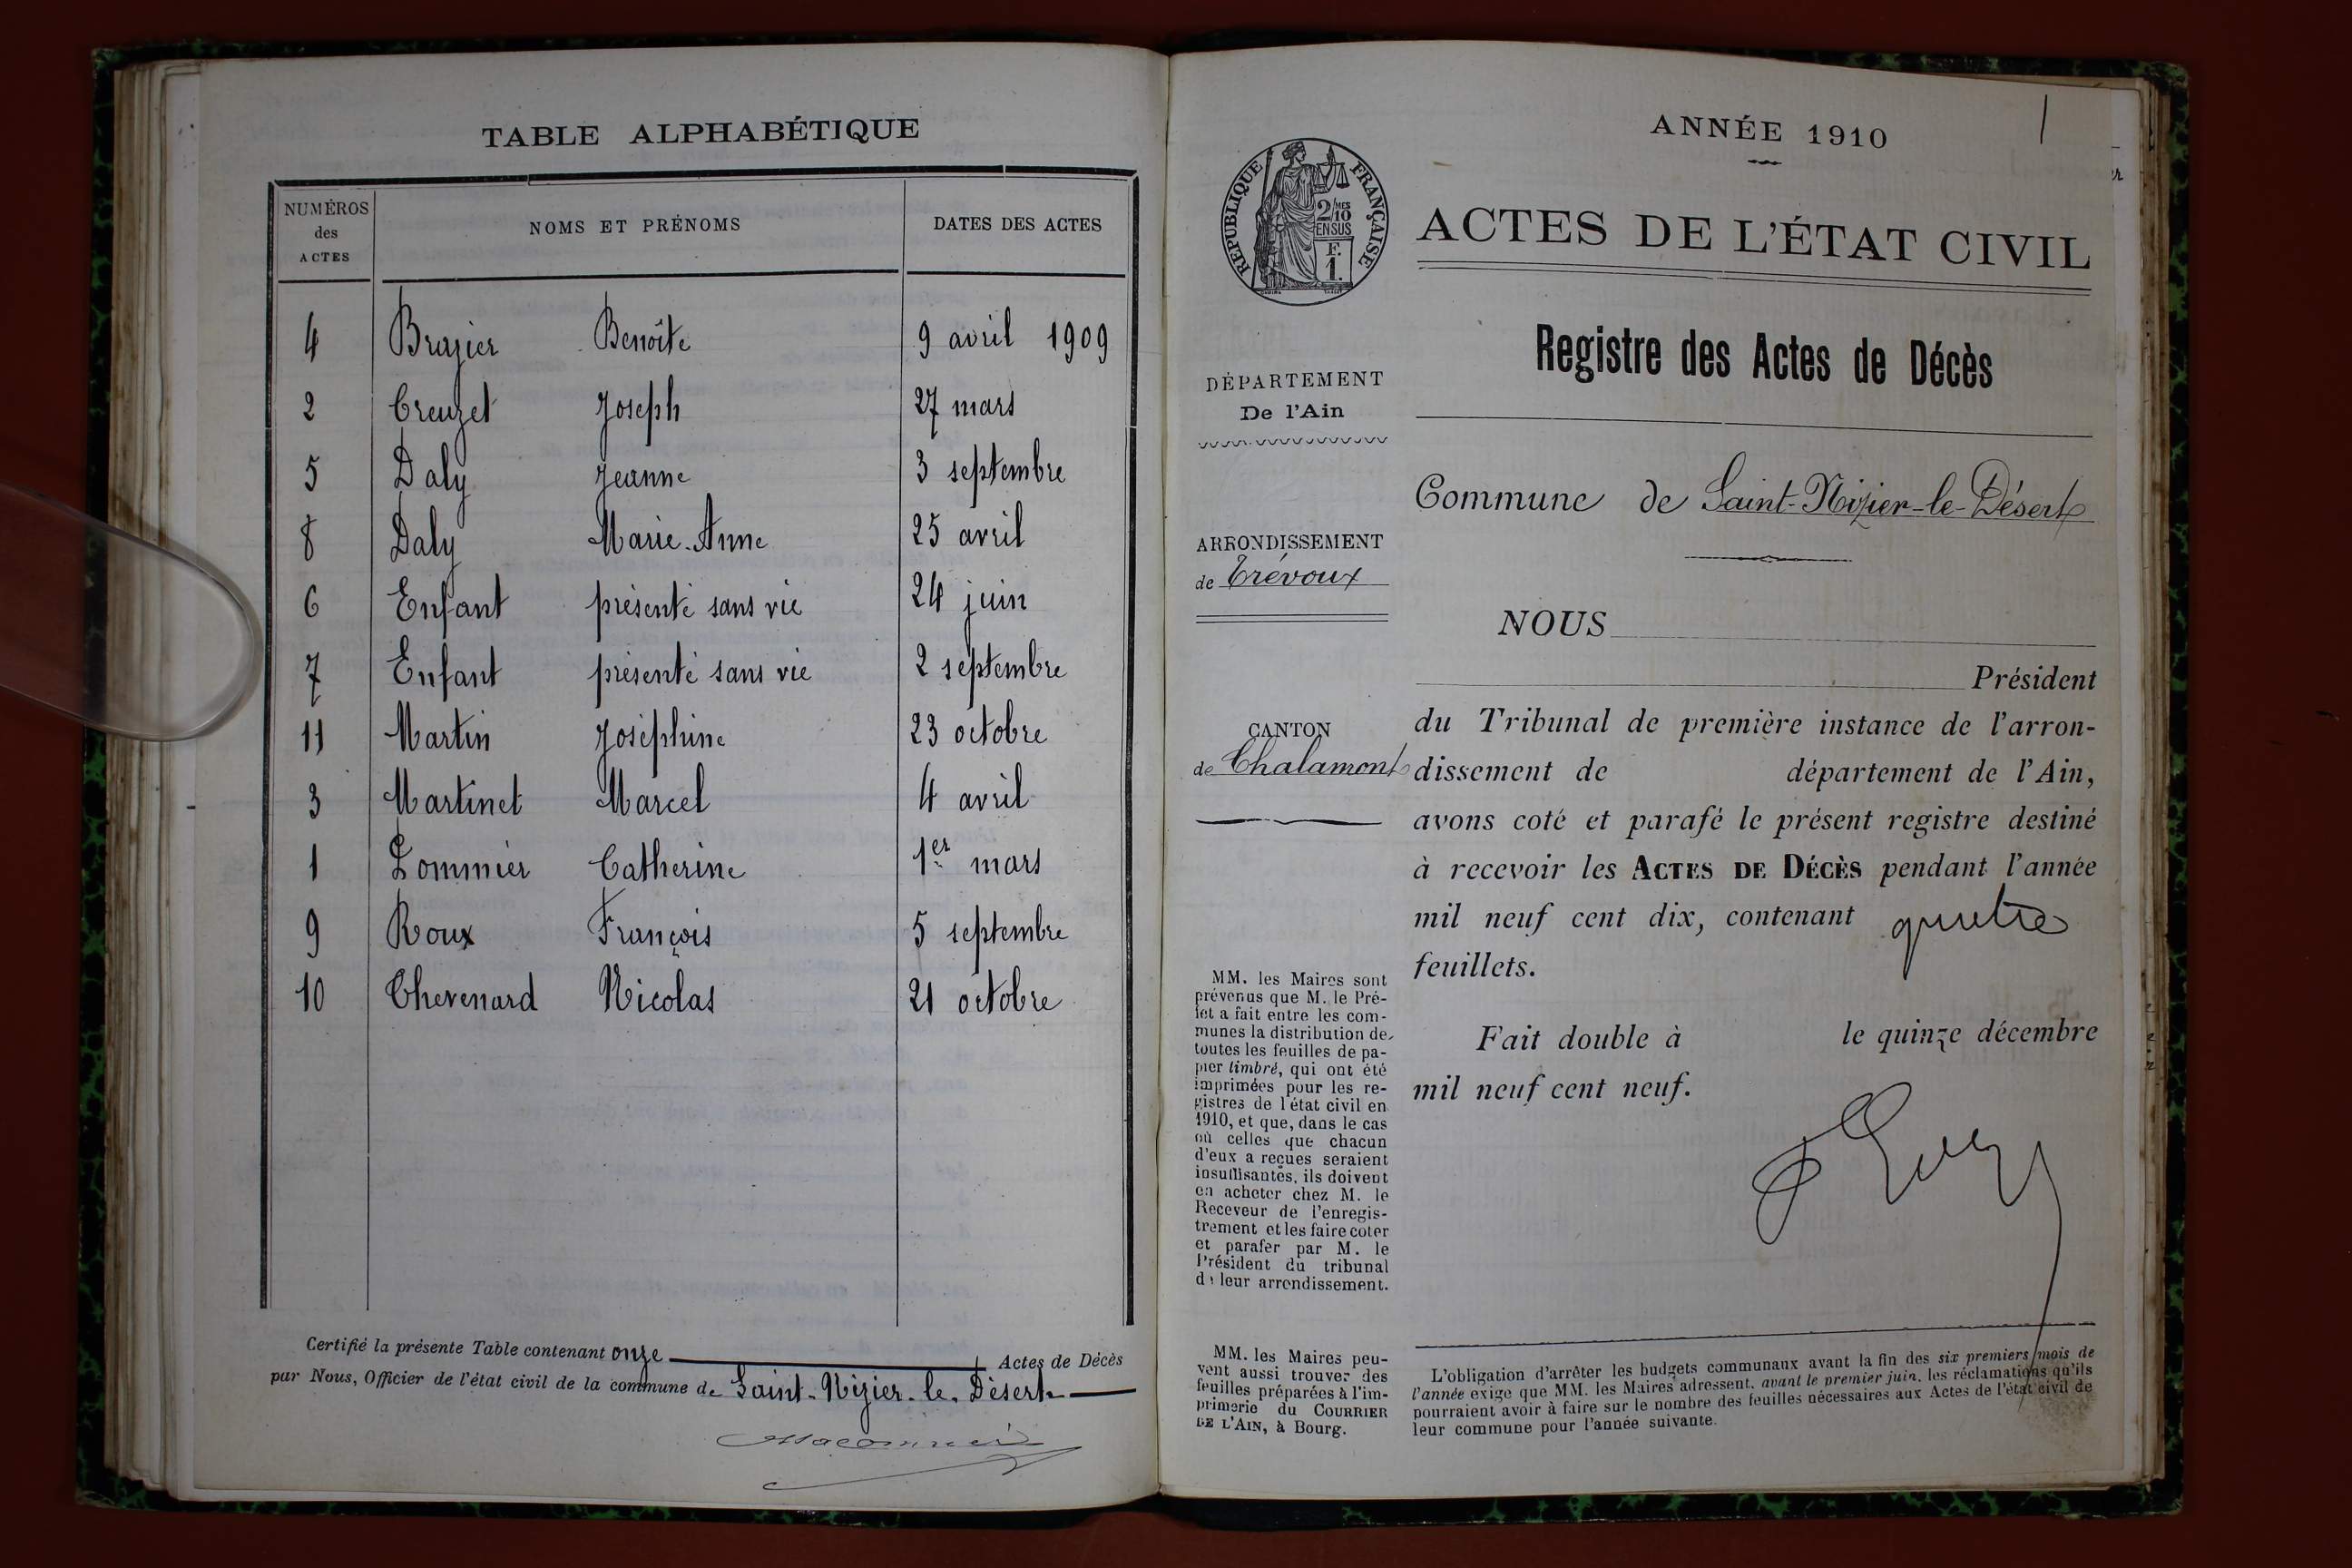 TABLE ALPHABÉTIQUE
NUMÉROS des ACTES NOMS ET PRÉNOMS DATES DES ACTES
4 Brazier Benoîte 9 avril 1909
2 Creuzet Joseph 27 mars
5 Daly Jeanne 3 septembre
8 Daly Marie-Anne 25 avril
6 Enfant présenté sans vie 24 juin
7 Enfant présenté sans vie 2 septembre
11 Martin Joséphine 23 octobre
3 Martinet Marcel 4 avril
1 Pommier Catherine 1er mars
9 Roux François 5 septembre
10 Thevenard Nicolas 21 octobre
Certifié la présente Table contenant onze Actes de Décès
par Nous, Officier de l'état civil de la commune de Saint-Nizier-le-Désert
1
ANNÉE 1910
RÉPUBLIQUE FRANÇAISE
2/10MES
EN SUS
F.
1.
ACTES DE L'ÉTAT CIVIL
Registre des Actes de Décès
DÉPARTEMENT
De l'Ain
Commune de Saint-Nizier-le-Désert
ARRONDISSEMENT
de Trévoux
NOUS
Président
CANTON
de Chalamont
du Tribunal de première instance de l'arron-
dissement de département de l'Ain,
avons coté et parafé le présent registre destiné
à recevoir les ACTES DE DÉCÈS pendant l'année
mil neuf cent dix, contenant quatre
feuillets.
Fait double à le quinze décembre
mil neuf cent neuf.
MM. les Maires sont
prévenus que M. le Pré-
fet a fait entre les com-
munes la distribution de
toutes les feuilles de pa-
pier timbré, qui ont été
imprimées pour les re-
gistres de l'état civil en
1910, et que, dans le cas
où celles que chacun
d'eux a reçues seraient
insuffisantes, ils doivent
en acheter chez M. le
Receveur de l'enregis-
trement et les faire coter
et parafer par M. le
Président du tribunal
de leur arrondissement.
MM. les Maires peu-
vent aussi trouver des
feuilles préparées à l'im-
primerie du COURRIER
DE L'AIN, à Bourg.
L'obligation d'arrêter les budgets communaux avant la fin des six premiers mois de
l'année exige que MM. les Maires adressent, avant le premier juin, les réclamations qu'ils
pourraient avoir à faire sur le nombre des feuilles nécessaires aux Actes de l'état civil de
leur commune pour l'année suivante.